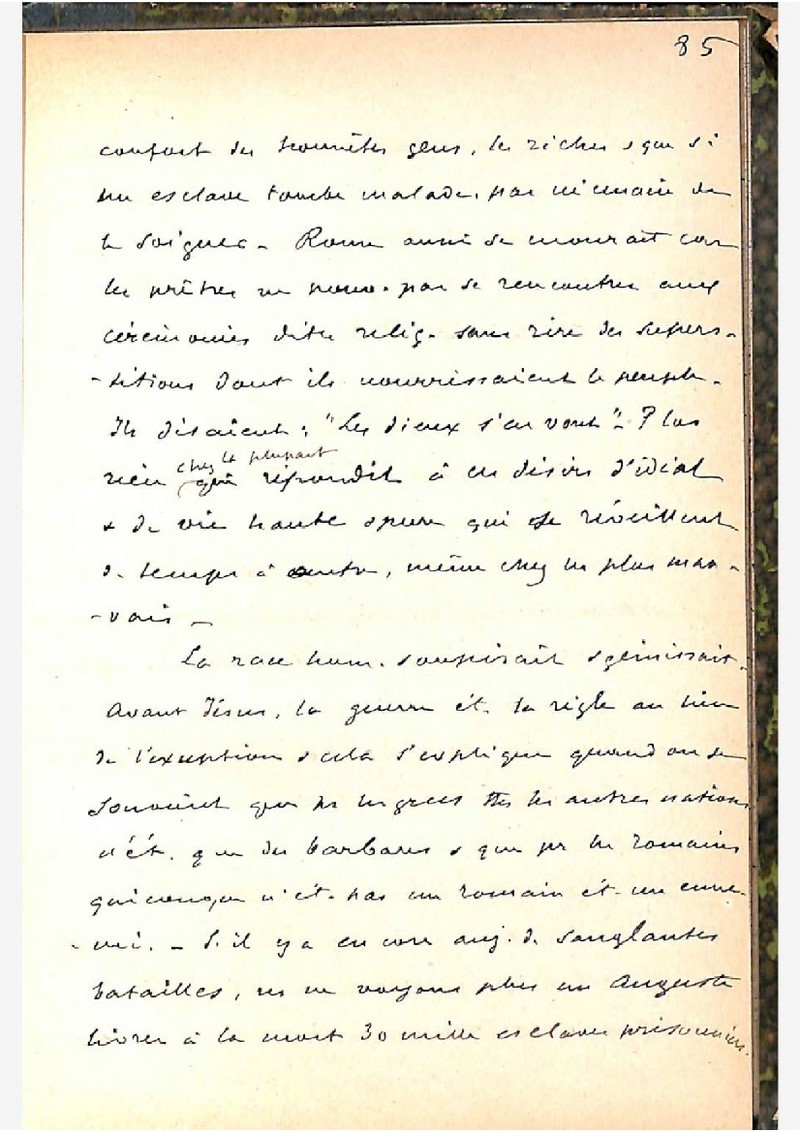 85
confort des honnêtes gens, les riches & que si
un esclave tombe malade, pas nécessaire de
le soigner - Rome aussi se mourait car
les prêtres ne pouv. pas se rencontrer aux
cérémonies dites relig. sans rire des supers-
-titions dont ils nourrissaient le peuple.
Ils disaient : "Les dieux s'en vont" - Plus
chez la plupart
rien qui répondît à ces désirs d'idéal
& de vie haute & pure qui se réveillent
de temps à autre, même chez les plus mau-
-vais -
La race hum. soupirait & gémissait.
Avant Jésus, la guerre ét. la règle au lieu
de l'exception & cela s'explique quand on se
souvient que pr les grecs ttes les autres nations
n'ét. que des barbares & que pr les romains
quiconque n'ét. pas un romain ét. un enne-
-mi. - S'il y a encore auj. de sanglantes
batailles, ns ne voyons plus un Auguste
livrer à la mort 30 mille esclaves prisonniers.